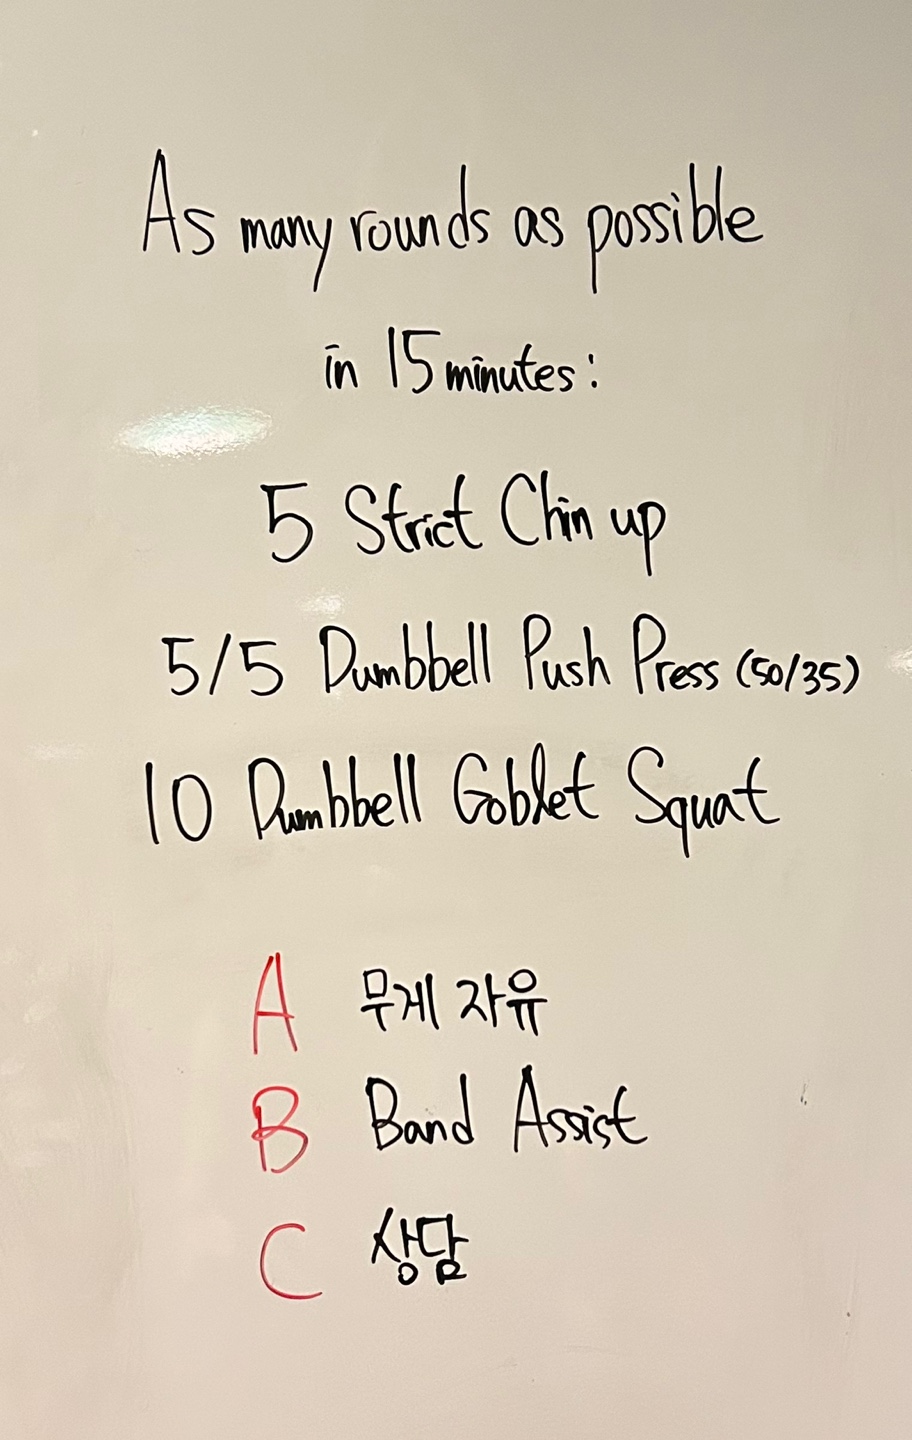 As many rounds as possible
in 15 minutes:
5 Strict Chin up
5/5 Dumbbell Push Press (50/35)
10 Dumbbell Goblet Squat
A 무게 자유
B Band Assist
C 상담